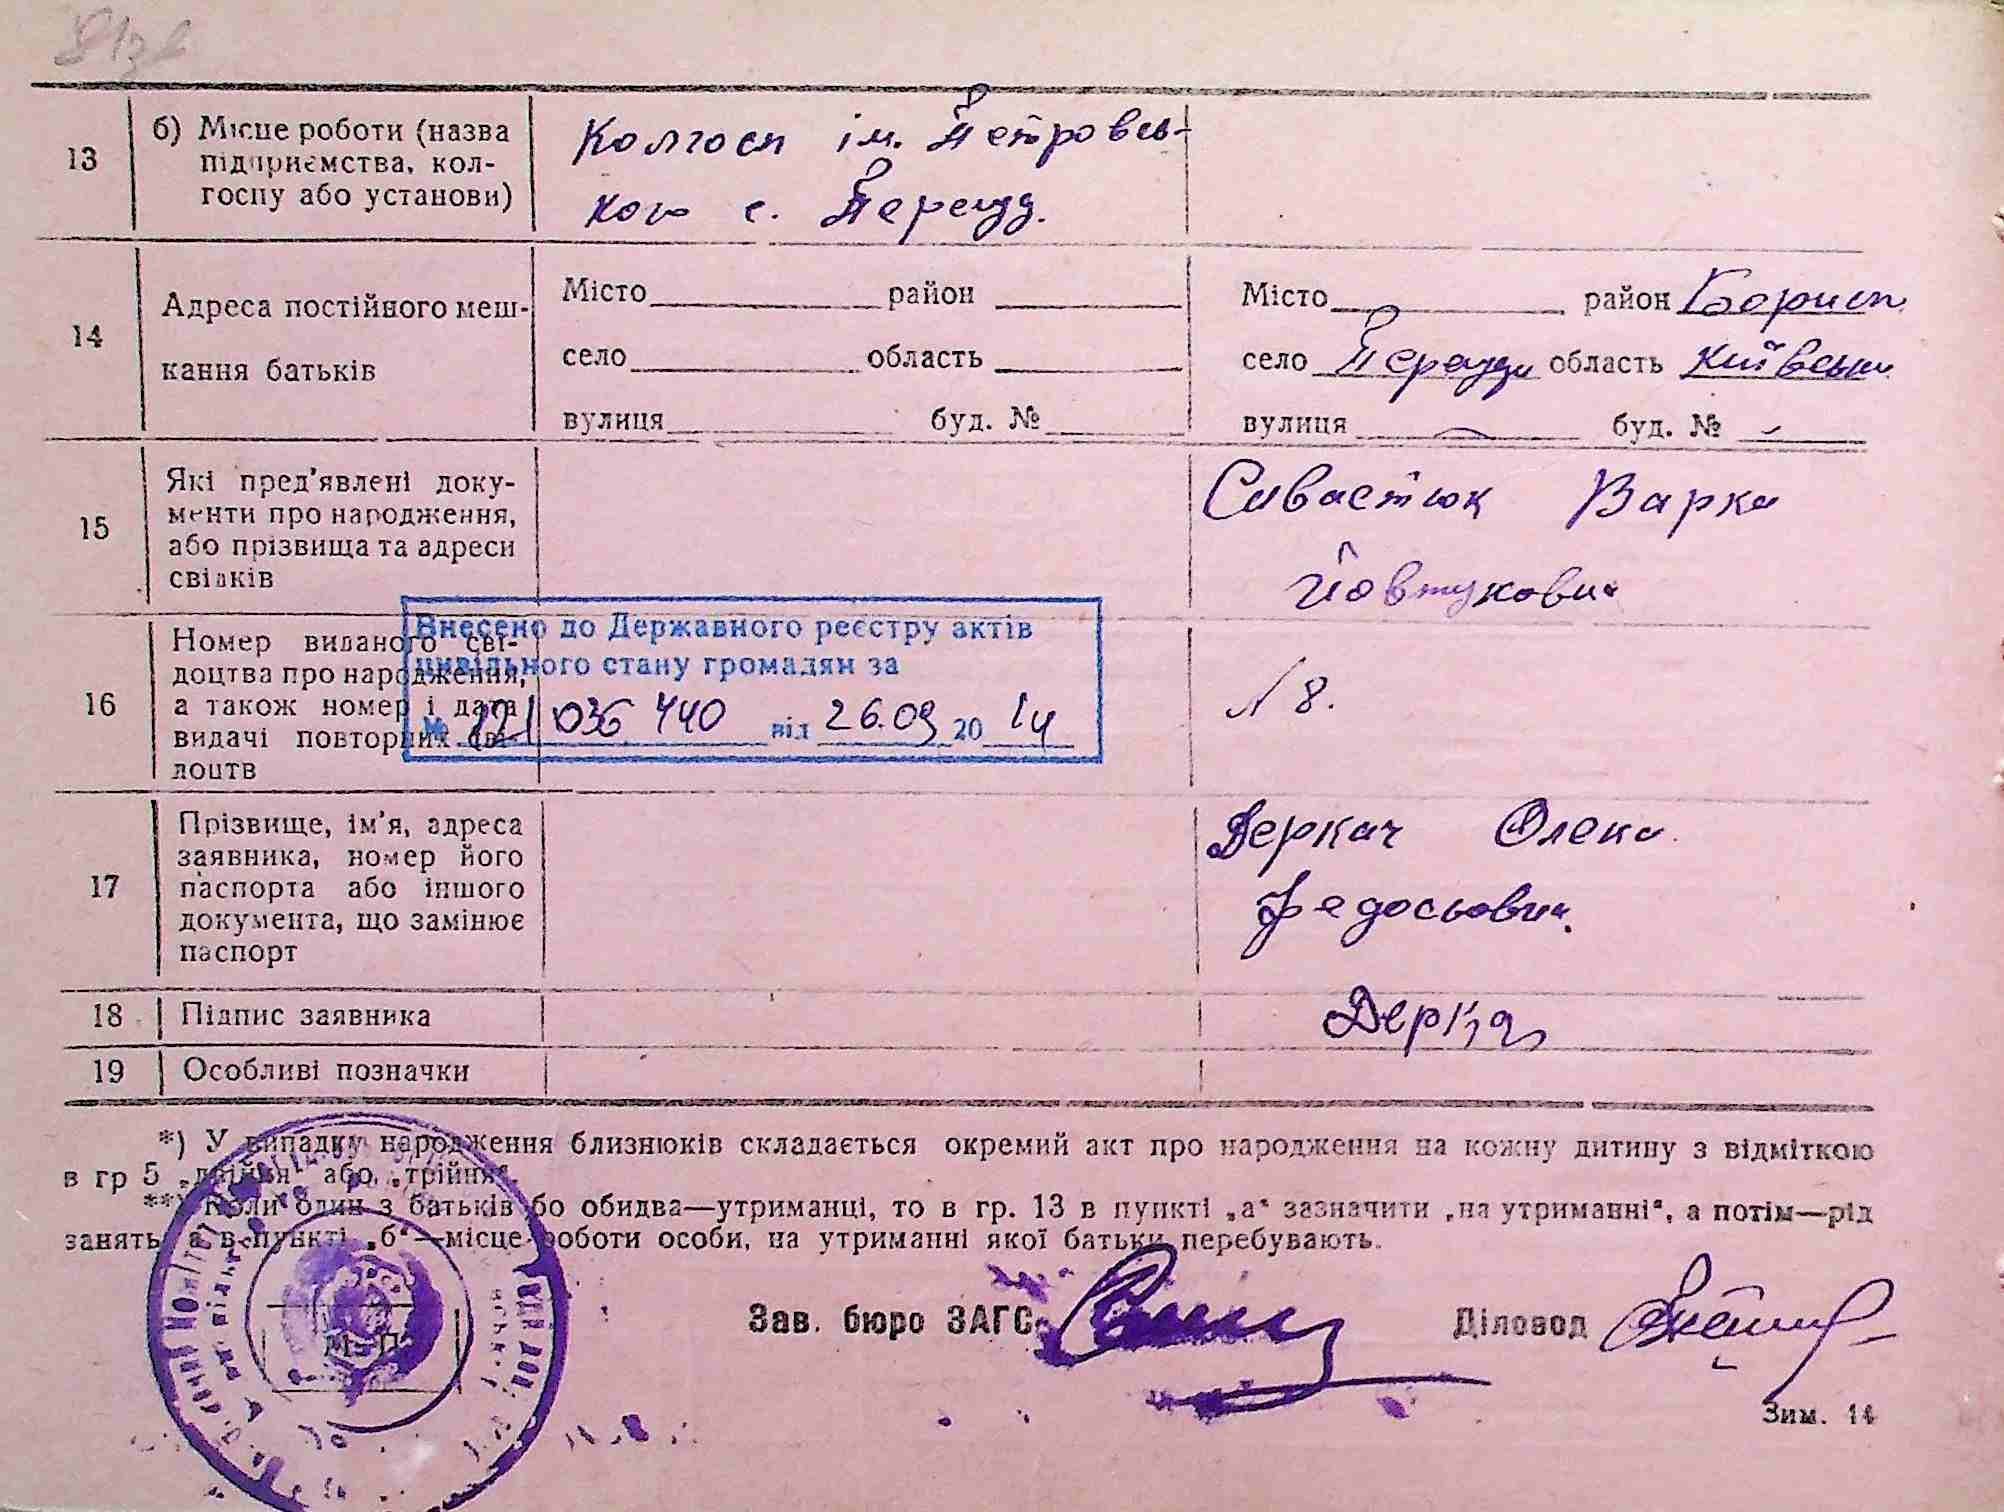 13
б) Місце роботи (назва
підприємства, кол-
госпу або установи)
Колгосп ім. Петровсь-
кого с.
14
Адреса постійного меш-
кання батьків
Місто район
село область
вулиця буд. №
Місто район Борисп.
село область Київськ.
вулиця — буд. № -
15
Які пред'явлені доку-
менти про народження,
або прізвища та адреси
свідків
Сивастюк Варка
Йовтуховна
16
Номер виданого сві-
доцтва про народження,
а також номер і дата
видачі повторних сві-
доцтв
Внесено до Державного реєстру актів
цивільного стану громадян за
№ 121 036 440 від 26.09 2014
N 8.
17
Прізвище, ім'я, адреса
заявника, номер його
паспорта або іншого
документа, що замінює
паспорт
Деркач Олена
Федосьовна.
18
Підпис заявника
Деркач
19
Особливі позначки
*) У випадку народження близнюків складається окремий акт про народження на кожну дитину з відміткою
в гр 5 „двійня" або „трійня".
**) Коли один з батьків або обидва—утриманці, то в гр. 13 в пункті „а" зазначити „на утриманні", а потім—рід
занять, а в пункті „б"—місце роботи особи, на утриманні якої батьки перебувають.
М. П.
Зав. бюро ЗАГС
Діловод
Зим. 14